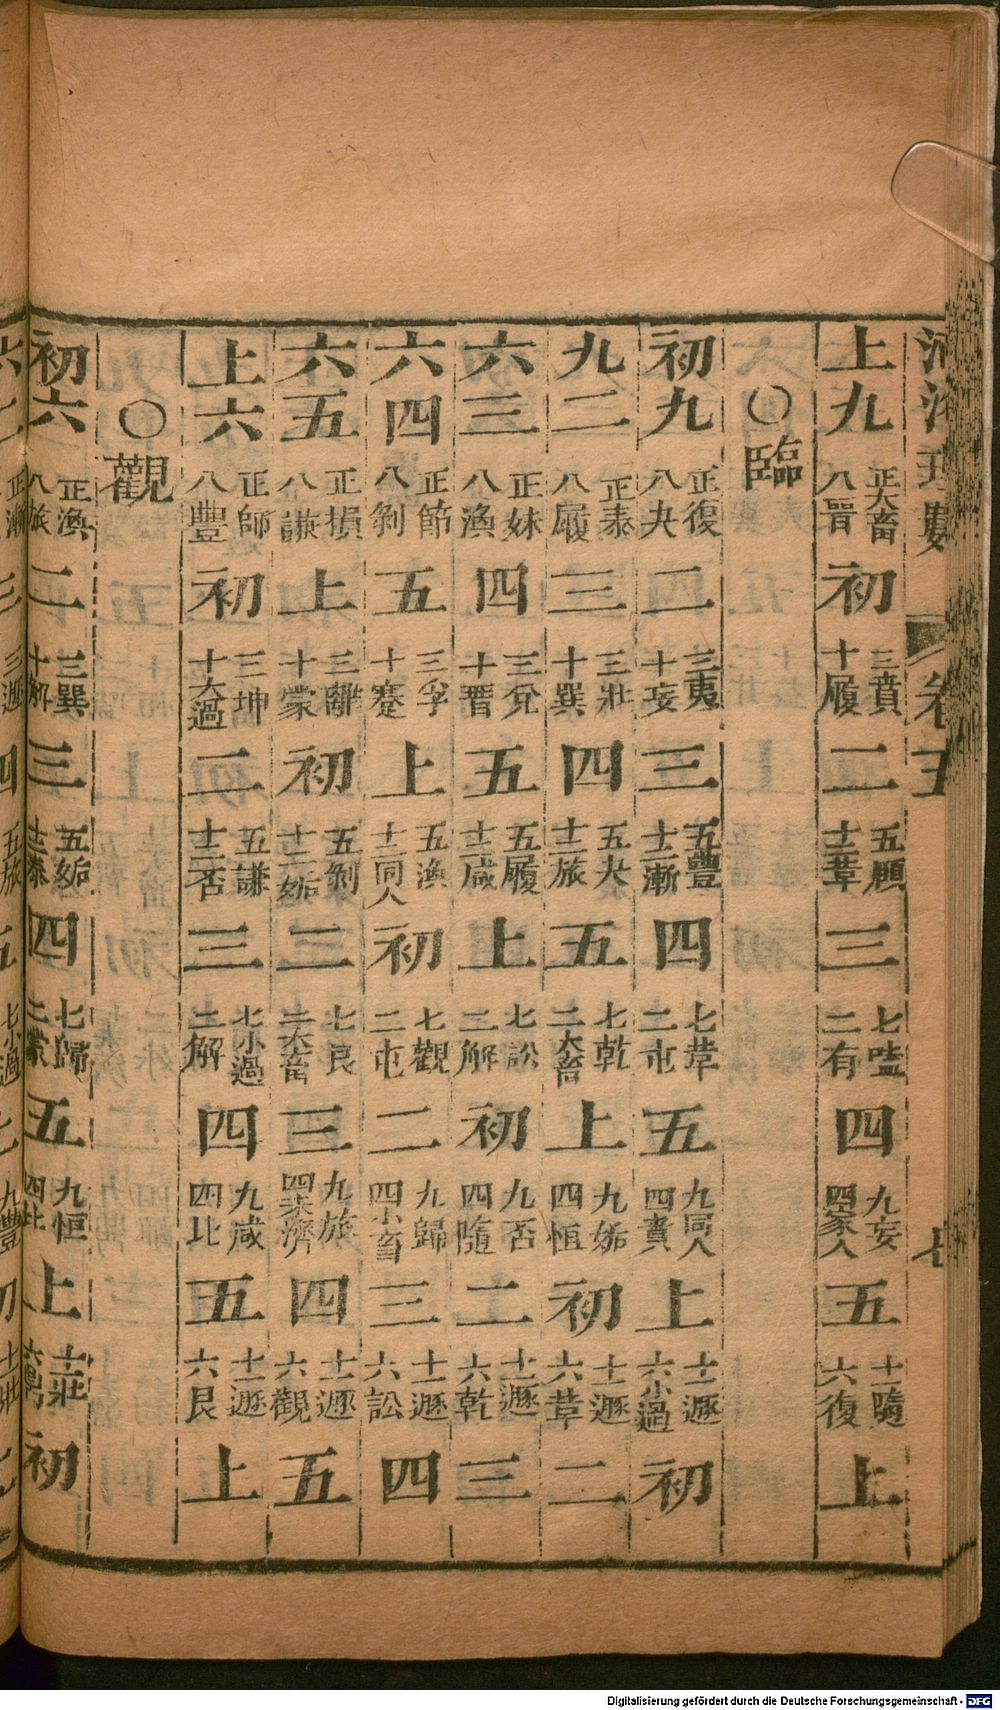 河洛理數 卷五 七
上九 正大畜 八晉 初 三賁 十履 二 五頤 十二萃 三 七嗑 二有 四 九妄 四家人 五 十一隨 六復 上
〇臨
初九 正復 八夬 二 三夷 十妄 三 五豐 十二漸 四 七萃 二屯 五 九同人 四賁 上 十一遯 六小過 初
九二 正泰 八履 三 三壯 十巽 四 五夬 十二旅 五 七乾 二大畜 上 九姤 四恒 初 十一遯 六萃 二
六三 正妹 八渙 四 三兌 十晉 五 五履 十二咸 上 七訟 二解 初 九否 四隨 二 十一遯 六乾 三
六四 正節 八剝 五 三孚 十蹇 上 五渙 十二同人 初 七觀 二屯 二 九歸 四小畜 三 十一遯 六訟 四
六五 正損 八謙 上 三離 十蒙 初 五剝 十二姤 二 七艮 二大畜 三 九旅 四未濟 四 十一遯 六觀 五
上六 正師 八豐 初 三坤 十大過 二 五謙 十二否 三 七小過 二解 四 九咸 四比 五 十一遯 六艮 上
〇觀
初六 正渙 八旅 二 三巽 十解 三 五姤 十二泰 四 七歸 二蒙 五 九恒 四比 上 十一壯 初
Digitalisierung gefördert durch die Deutsche Forschungsgemeinschaft - DFG